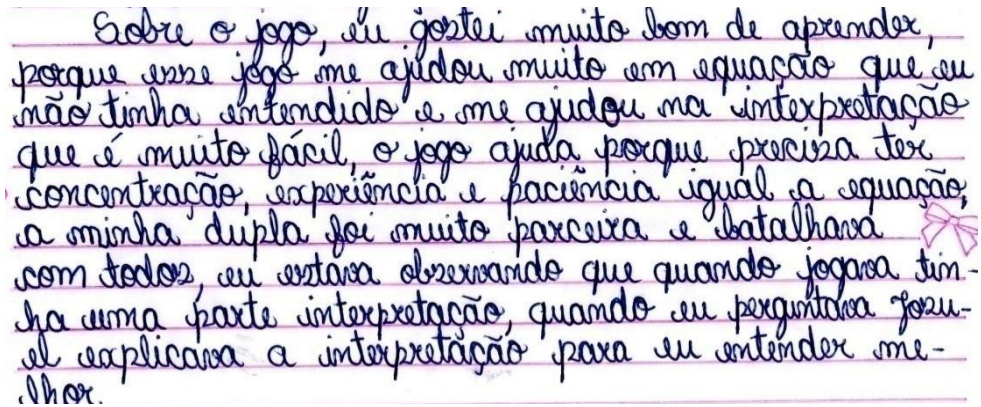 Sobre o jogo, eu gostei muito bom de aprender,
porque esse jogo me ajudou muito em equação que eu
não tinha entendido e me ajudou na interpretação
que é muito fácil, o jogo ajuda porque precisa ter
concentração, experiência e paciência igual a equação,
a minha dupla foi muito parceira e batalhava
com todos, eu estava observando que quando jogava tin-
ha uma parte interpretação, quando eu perguntava Jozu-
el explicava a interpretação para eu entender me-
lhor.